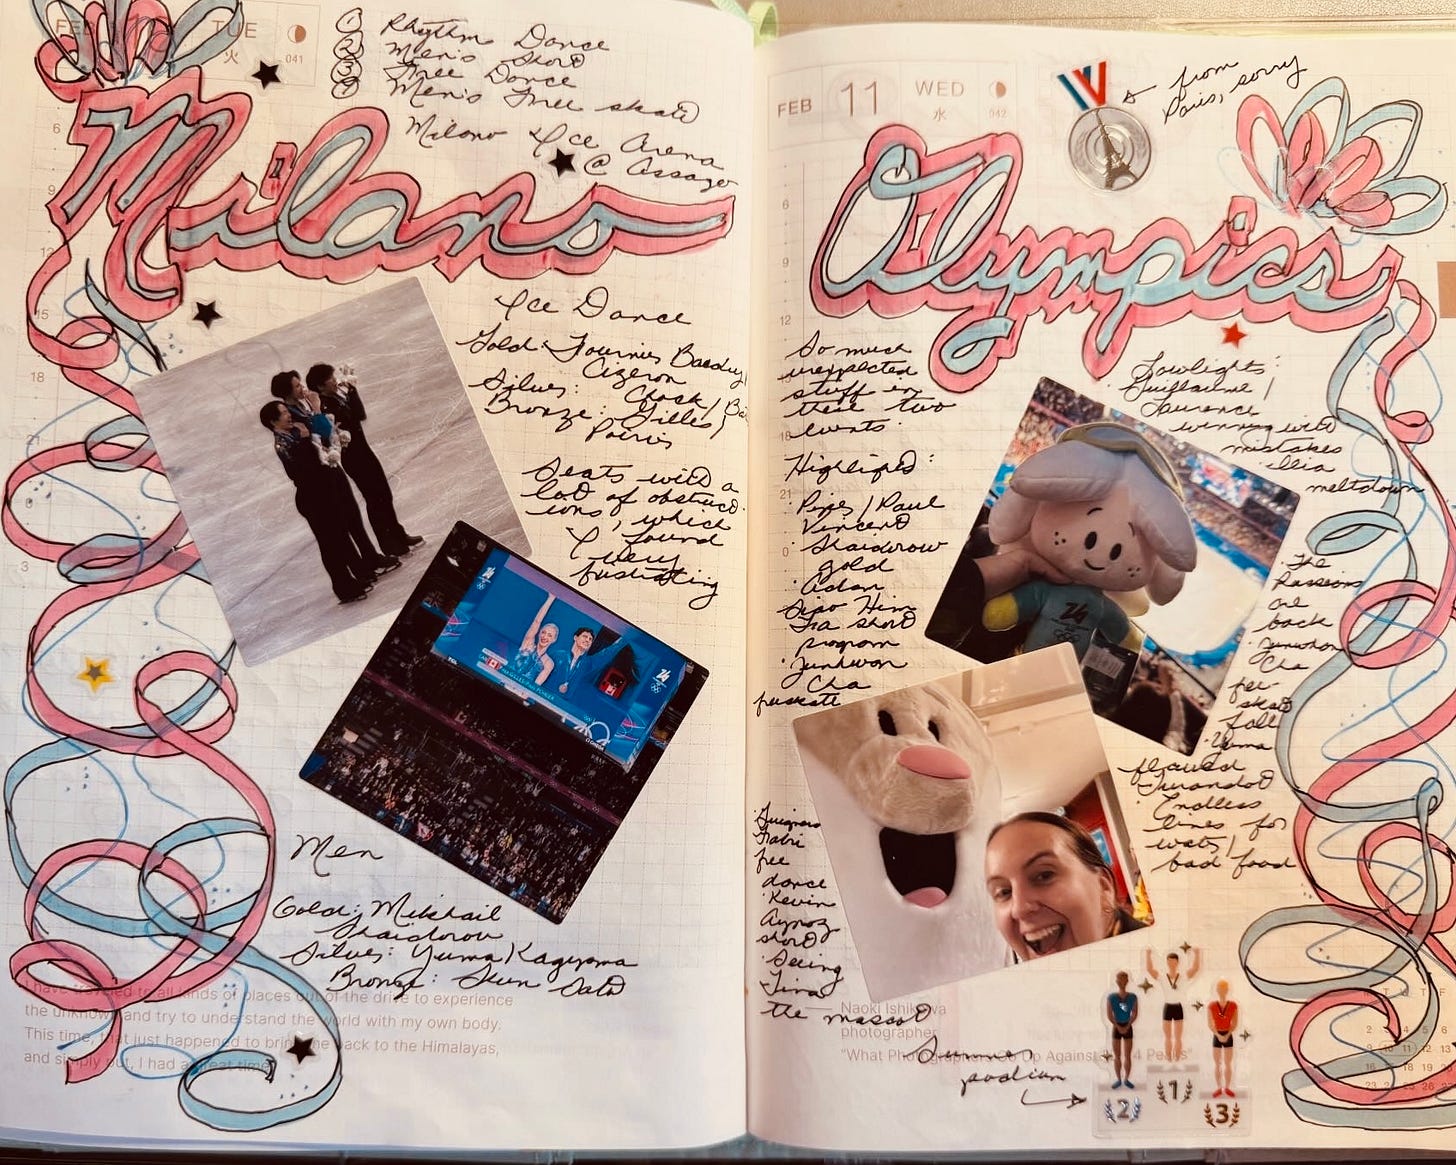 FEB 10 TUE
火 041
① Rhythm Dance
② Men's Short
③ Free Dance
④ Men's Free skate
Milano Ice Arena
@ Assago
Milano
Ice Dance
Gold: Fournier Beaudry/
Cizeron
Silver: Chock/Ba
Bronze: Gilles/
Poirier
Seats with a
lot of obstruct
ions, which
I found
very
frustrating
Men
Gold: Mikhail
Shaidorov
Silver: Yuma Kagiyama
Bronze: Shun Sato
I have traveled to all kinds of places out of the drive to experience
the unknown and try to understand the world with my own body.
This time, that just happened to bring me back to the Himalayas,
and simply put, I had a great time.
FEB 11 WED
水 042
from
Paris, sorry
Olympics
So much
unexpected
stuff in
these two
events
Highlights:
Paul
Vincent
Shaidorov
gold
Adam
Siao Him
Fa short
program
Junhwan
Cha
freeskate
Guignard
Fabri
free
dance
Kevin
Aymoz
short
Seeing
Tina
the mascot
Lowlights:
Guillaume/
Laurence
winning with
mistakes
Ilia
meltdown
The
Russians
are
back
Junhwan
Cha
fall
Yuma
flawed
Turandot
Endless
lines for
bad food
Naoki Ishikawa
photographer
Summer
podium
2
1
3